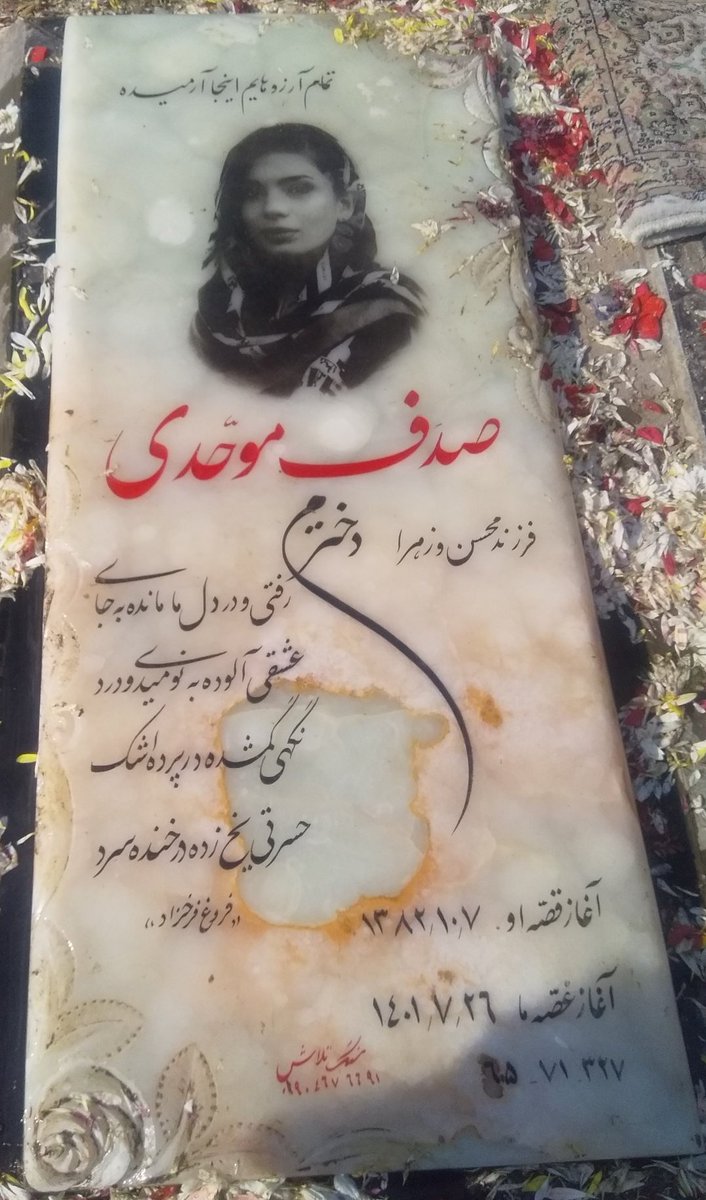 تمام آرزوهایم اینجا آرمیده
صدف موحّدی
فرزند محسن و زهرا
دخترم
رفتی و در دل ما مانده به جای
عشقی آلوده به نومیدی و درد
نگهی گمشده در پرده اشک
حسرتی یخ زده در خنده سرد
«فروغ فرخزاد»
آغاز قصّه او ۱۳۸۲٫۱۰٫۷
آغاز غصّه ما ۱۴۰۱٫۷٫۲۶
۳۲۷ - ۷۱ - ۶۰۵
سنگ تلاش